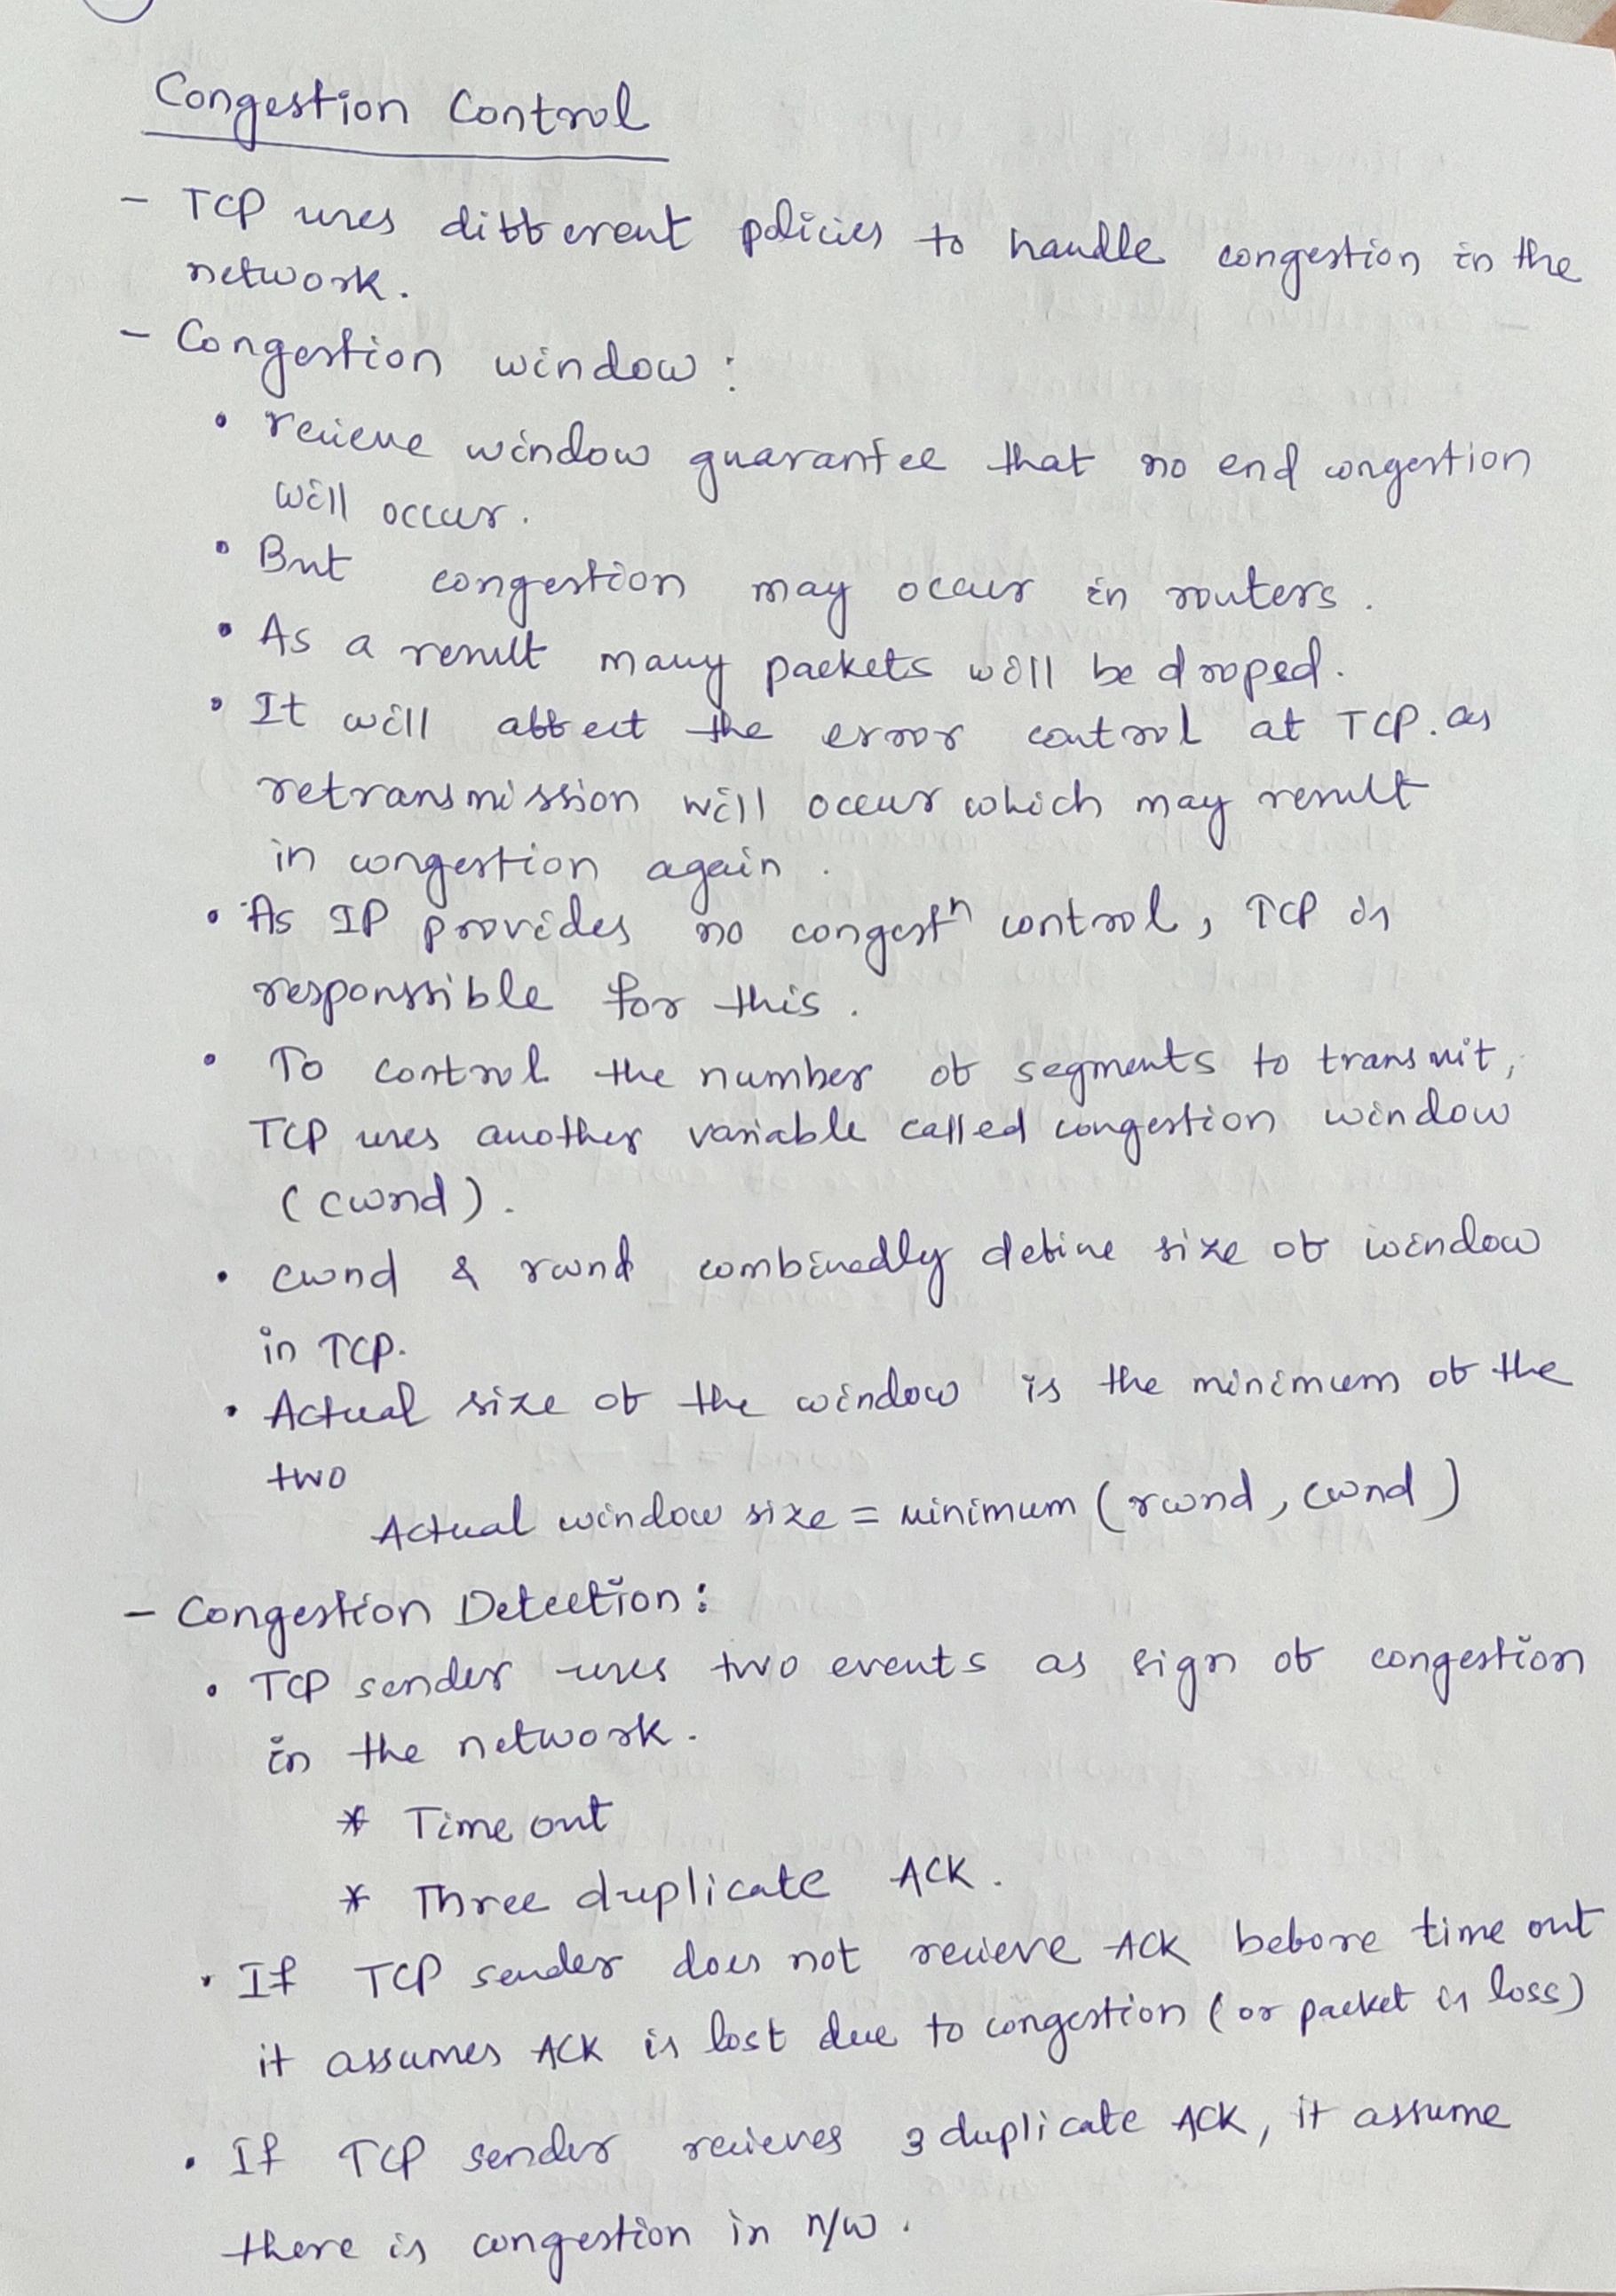 Congestion Control
- TCP uses different policies to handle congestion in the
network.
- Congestion window :
• recieve window guarantee that no end congestion
will occur.
• But congestion may occur in routers.
• As a result many packets will be droped.
• It will affect the error control at TCP. as
retransmission will occur which may result
in congestion again.
• As IP provides no congestⁿ control, TCP is
responssible for this.
• To control the number of segments to transmit,
TCP uses another variable called congestion window
(cwnd).
• cwnd & rwnd combinedly define size of window
in TCP.
• Actual size of the window is the minimum of the
two
Actual window size = minimum (rwnd, cwnd)
- Congestion Detection :
• TCP sender uses two events as sign of congestion
in the network.
* Time out
* Three duplicate ACK.
• If TCP sender does not recieve ACK before time out
it assumes ACK is lost due to congestion (or packet is loss)
• If TCP sender recieves 3 duplicate ACK, it assume
there is congestion in n/w.